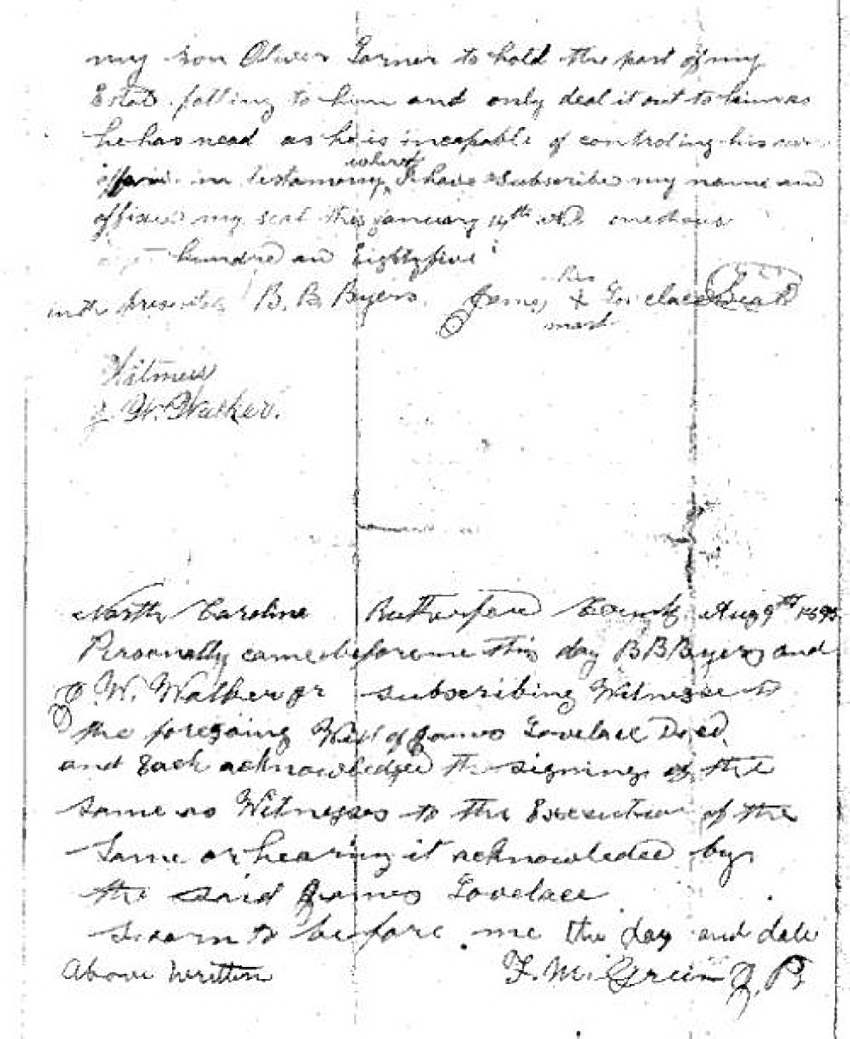 my son Oliver Turner to hold the part of my
Estate falling to him and only deal it out to him as
he has nead as he is incapable of controling his own
whereof
affairs in testamony I have subscribe my name and
affixed my seal this January 14th AD. one thous
hundre an Eightyfive
his
in the presents B. B. Byers. James X Lovelace Seal
mark
Witness
J. W. Walker.
North Caroline Rutherford County Aug 9th
Personally came before me this day B B Byers and
J. W. Walker Jr subscribing Witnesse to
the foregoing Will of James Lovelace Decd,
and Each acknowledged the signing of the
same as Witnesses to the Execution of the
Same or hearing it acknowledeed by
the said James Lovelace
Sworn to before me the day and date
Above written F. M. Green J. P.